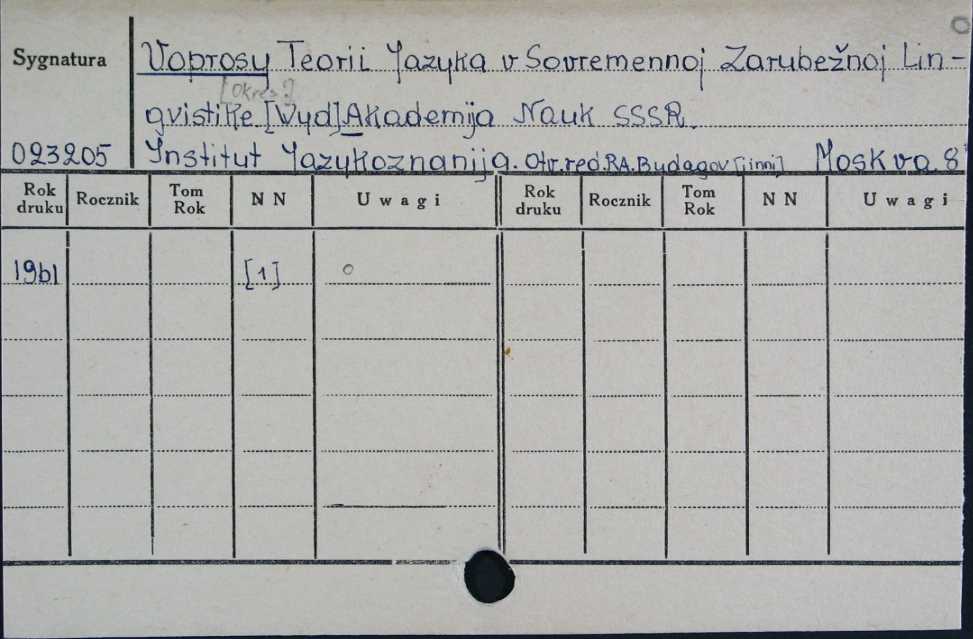 Sygnatura
Voprosy Teorii Jazyka v Sovremennoj Zarubežnoj Lin-
[Okres?]
gvistike [Vyd] Akademija Nauk SSSR.
023205 Institut Jazykoznanija. Otv. red. R.A. Budagov [i inni] Moskva 8°
Rok druku Rocznik Tom Rok N N Uwagi Rok druku Rocznik Tom Rok N N Uwagi
1961 [1] o